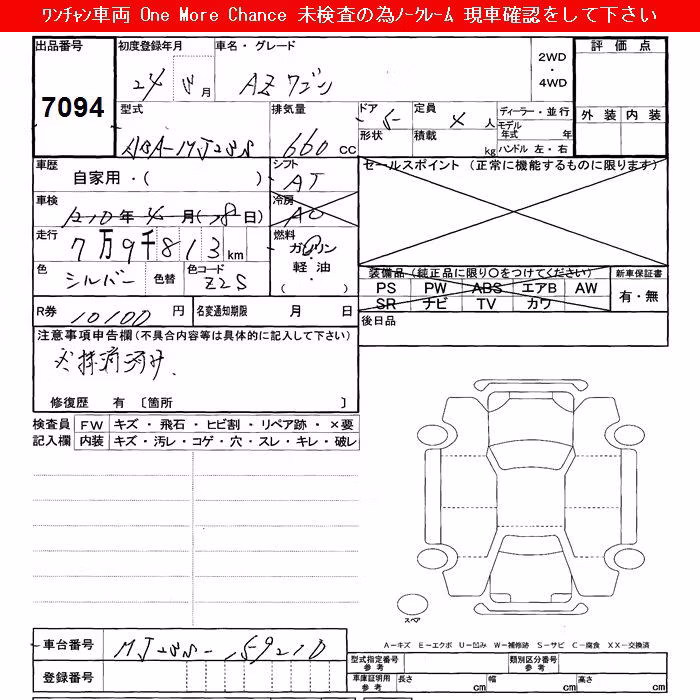 ﾜﾝﾁｬﾝ車両 One More Chance 未検査の為ﾉｰｸﾚｰﾑ 現車確認をして下さい
出品番号
7094
初度登録年月
24 月
車名・グレード
AZワゴン
2WD
・
4WD
評価点
外装 内装
型式
ABA-MJ23S
排気量
660 CC
ドア 5
定員 4 人
形状
積載 kg
ディーラー・並行
モデル年式 年
ハンドル 左・右
車歴
自家用・( )
シフト
AT
セールスポイント (正常に機能するものに限ります)
車検
年 月( 日)
冷房
AC
走行
7万9千813km
燃料
ガソリン
・
軽油
( )
色
シルバー
色替
色コード
Z2S
装備品(純正品に限り○をつけてください)
PS PW ABS エアB AW
SR ナビ TV カワ
新車保証書
有・無
R券
10100 円
名変通知期限 月 日
後日品
注意事項申告欄(不具合内容等は具体的に記入して下さい)
修復歴 有 〔箇所 〕
検査員記入欄
FW キズ・飛石・ヒビ割・リペア跡・×要
内装 キズ・汚レ・コゲ・穴・スレ・キレ・破レ
スペア
A-キズ E-エクボ U-凹み W-補修跡 S-サビ C-腐食 XX-交換済
車台番号
登録番号
型式指定番号参考
類別区分番号参考
車庫証明用参考
長さ cm
幅 cm
高さ cm